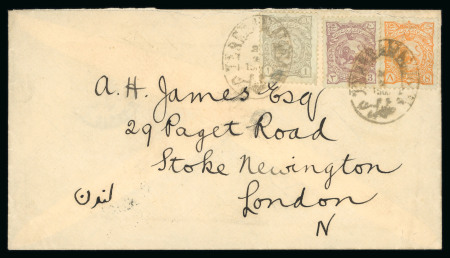 A. H. James Esq
29 Paget Road
Stoke Newington
London
N
لندن